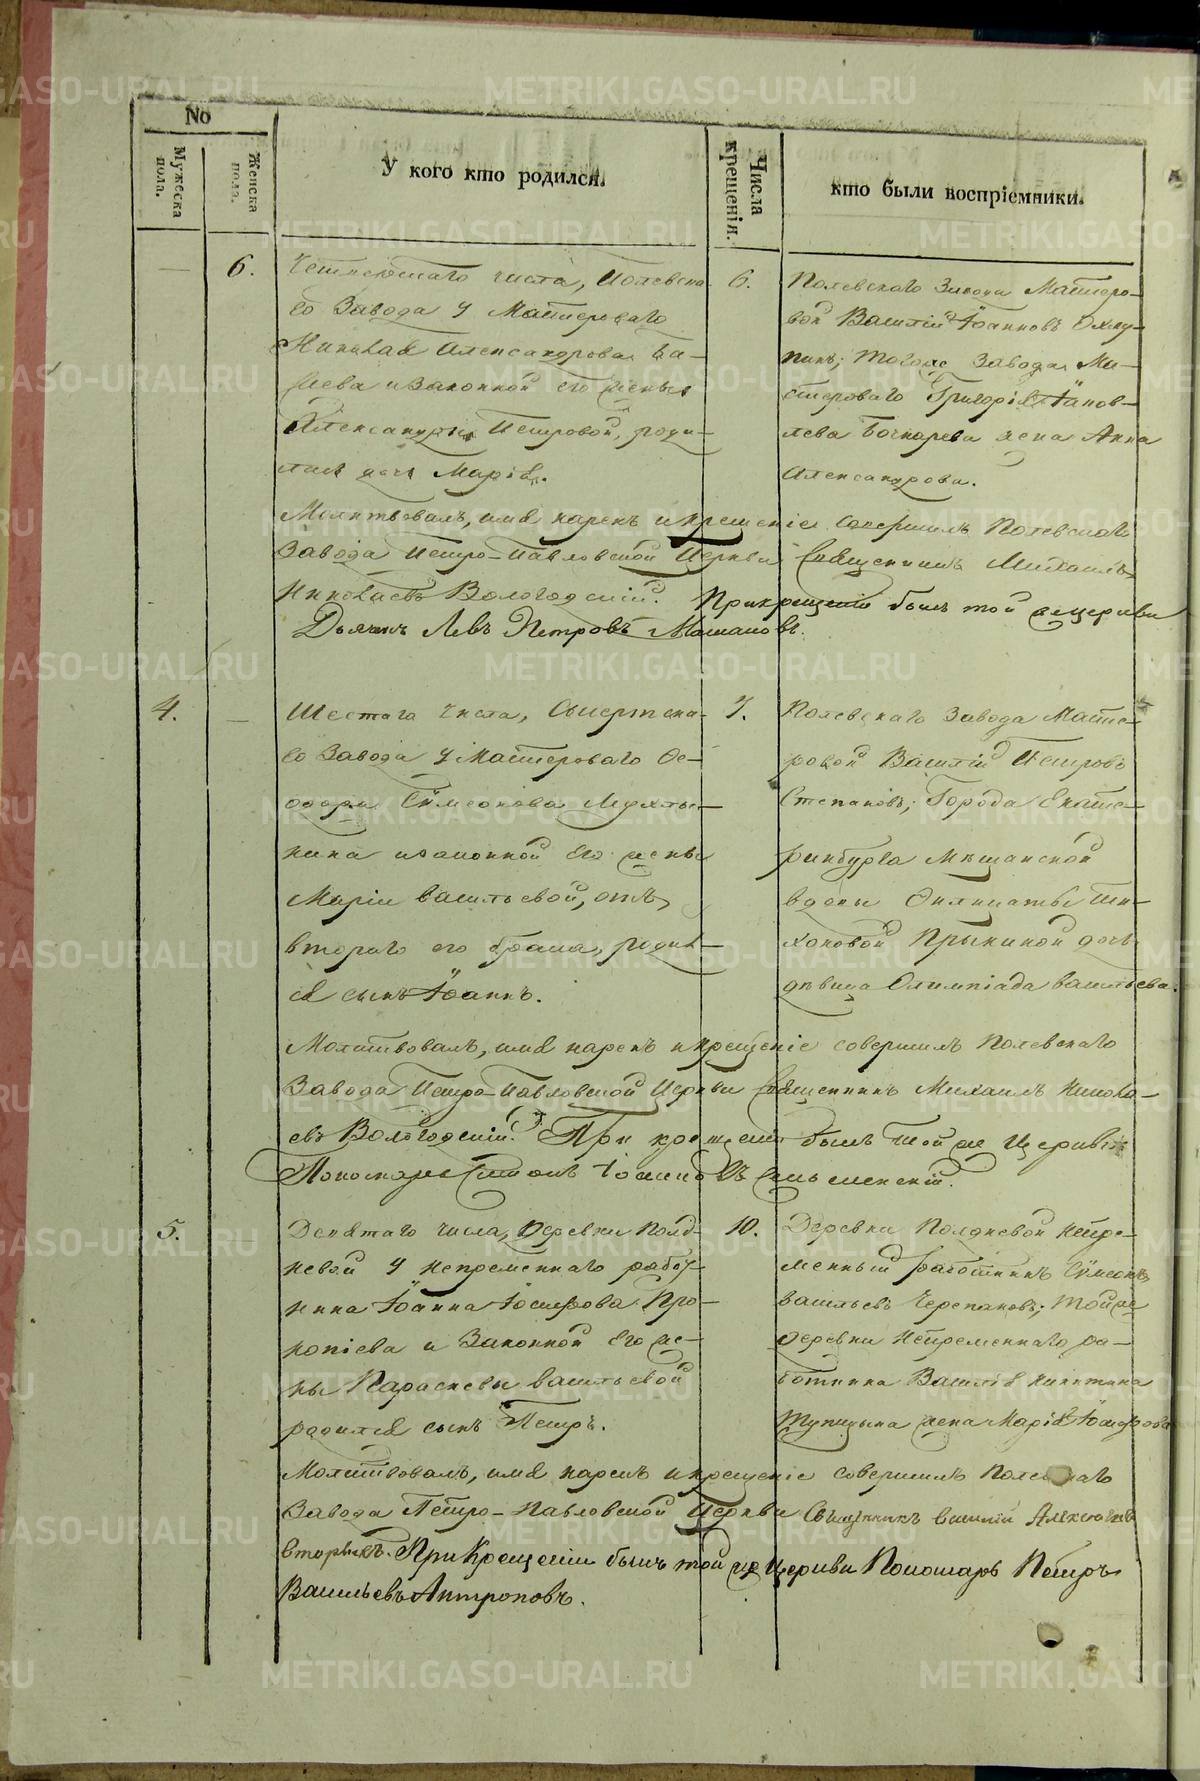 No
Мужеска пола.
Женска пола.
У кого кто родился.
Числа крещенія.
кто были воспріемники.
6.
Четвертаго числа, Полевска-
го Завода у Мастероваго
Николая Александрова
и законной его жены
Александры Петровой, роди-
лась дочь Марія.
6.
Полевскаго Завода Мастеро-
вой Василій Іоанновъ
тогоже Завода Ма-
стероваго Григорія
Бочкарева жена Анна
Александрова.
Молитвовалъ, имя нарекъ и крещеніе совершилъ Полевскаго
Завода Петро-Павловской Церкви Священникъ Михаилъ
Николаевъ Вологодскій. При крещеніи былъ той же церкви
Дьячекъ Левъ Петровъ
4.
Шестаго числа, Сысертска-
го Завода у Мастероваго Ѳе-
одора Сѵмеонова
и законной его жены
Маріи Васильевой, отъ
втораго его брака, родил-
ся сынъ Іоаннъ.
7.
Полевскаго Завода Масте-
ровой Василій Петровъ
Степановъ; Города Екате-
ринбурга Мѣщанской
вдовы Ти-
хоновой дочь
дѣвица Олимпіада Васильева.
Молитвовалъ, имя нарекъ и крещеніе совершилъ Полевскаго
Завода Петро-Павловской Церкви Священникъ Михаилъ Никола-
евъ Вологодскій. При крещеніи былъ той же Церкви
Пономарь
5.
Девятаго числа, Деревни Полд-
невой у непременнаго работ-
ника Іоанна Іосифова Про-
копіева и Законной Его же-
ны Параскевы Васильевой
родился сынъ Петръ.
10.
Деревни Полдневой непре-
менный работникъ Сѵмеонъ
Васильевъ Черепановъ; той же
деревни непременнаго ра-
ботника Василія Никитина
Тупицына жена Марія Іосифова
Молитвовалъ, имя нарекъ и крещеніе совершилъ Полевскаго
Завода Петро-Павловской Церкви Священникъ Василій
При Крещеніи былъ той же Церкви Пономарь Петръ
Васильевъ Антроповъ.
METRIKI.GASO-URAL.RU